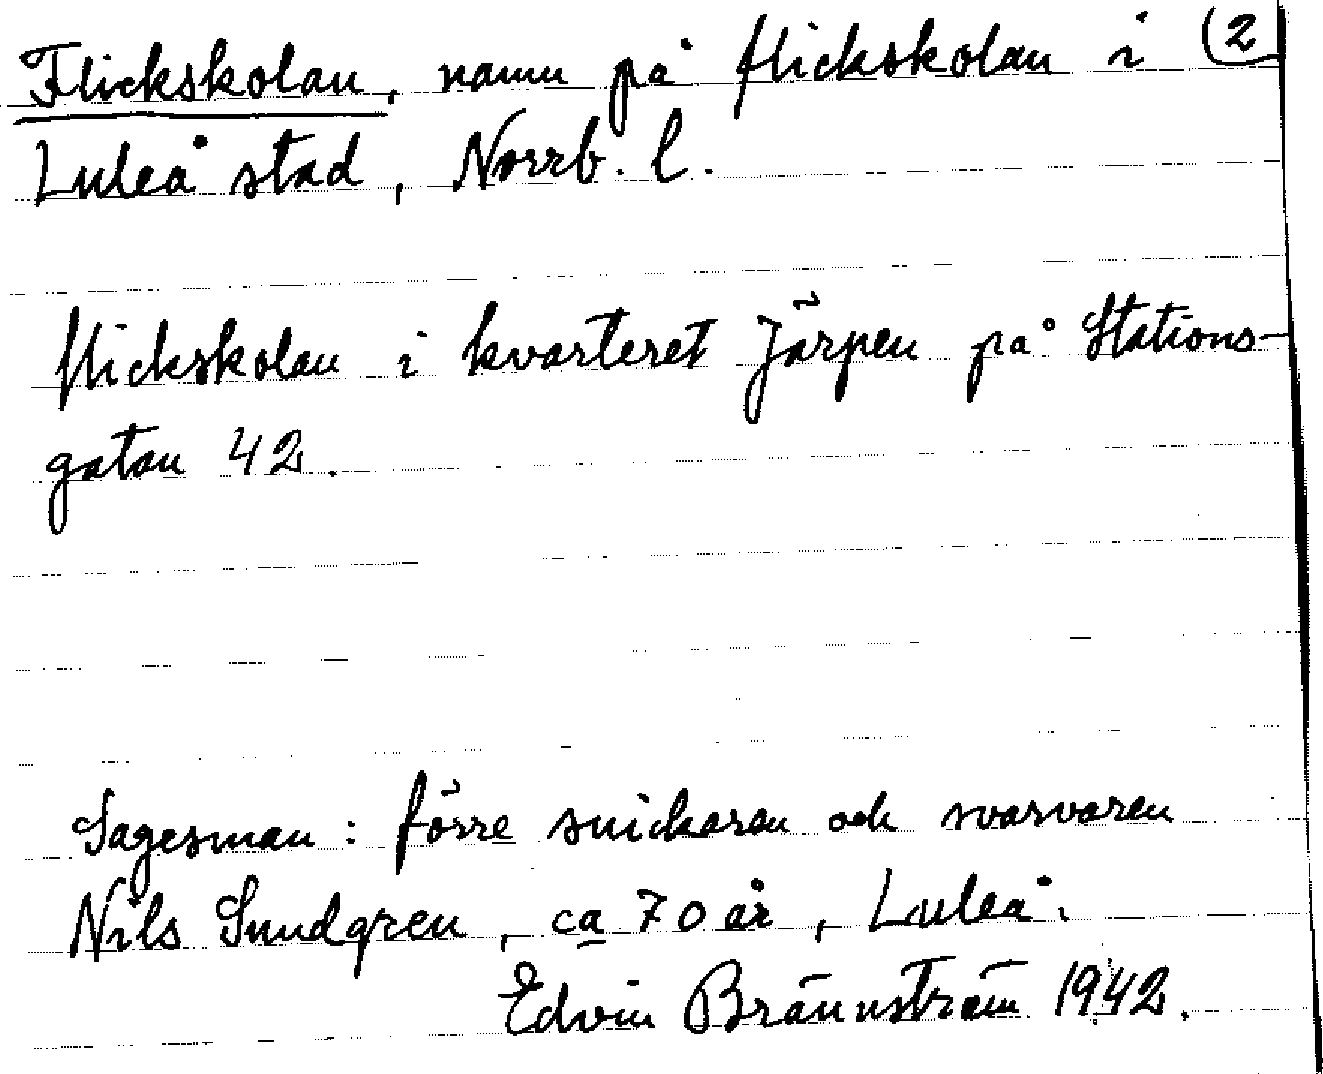 Flickskolan, namn på flickskolan i (2
Luleå stad, Norrb. l.
flickskolan i kvarteret Järpen på Stations-
gatan 42.
Sagesman: förre snickaren och svarvaren
Nils Sundgren, ca 70 år, Luleå.
Edvin Brännström 1942.